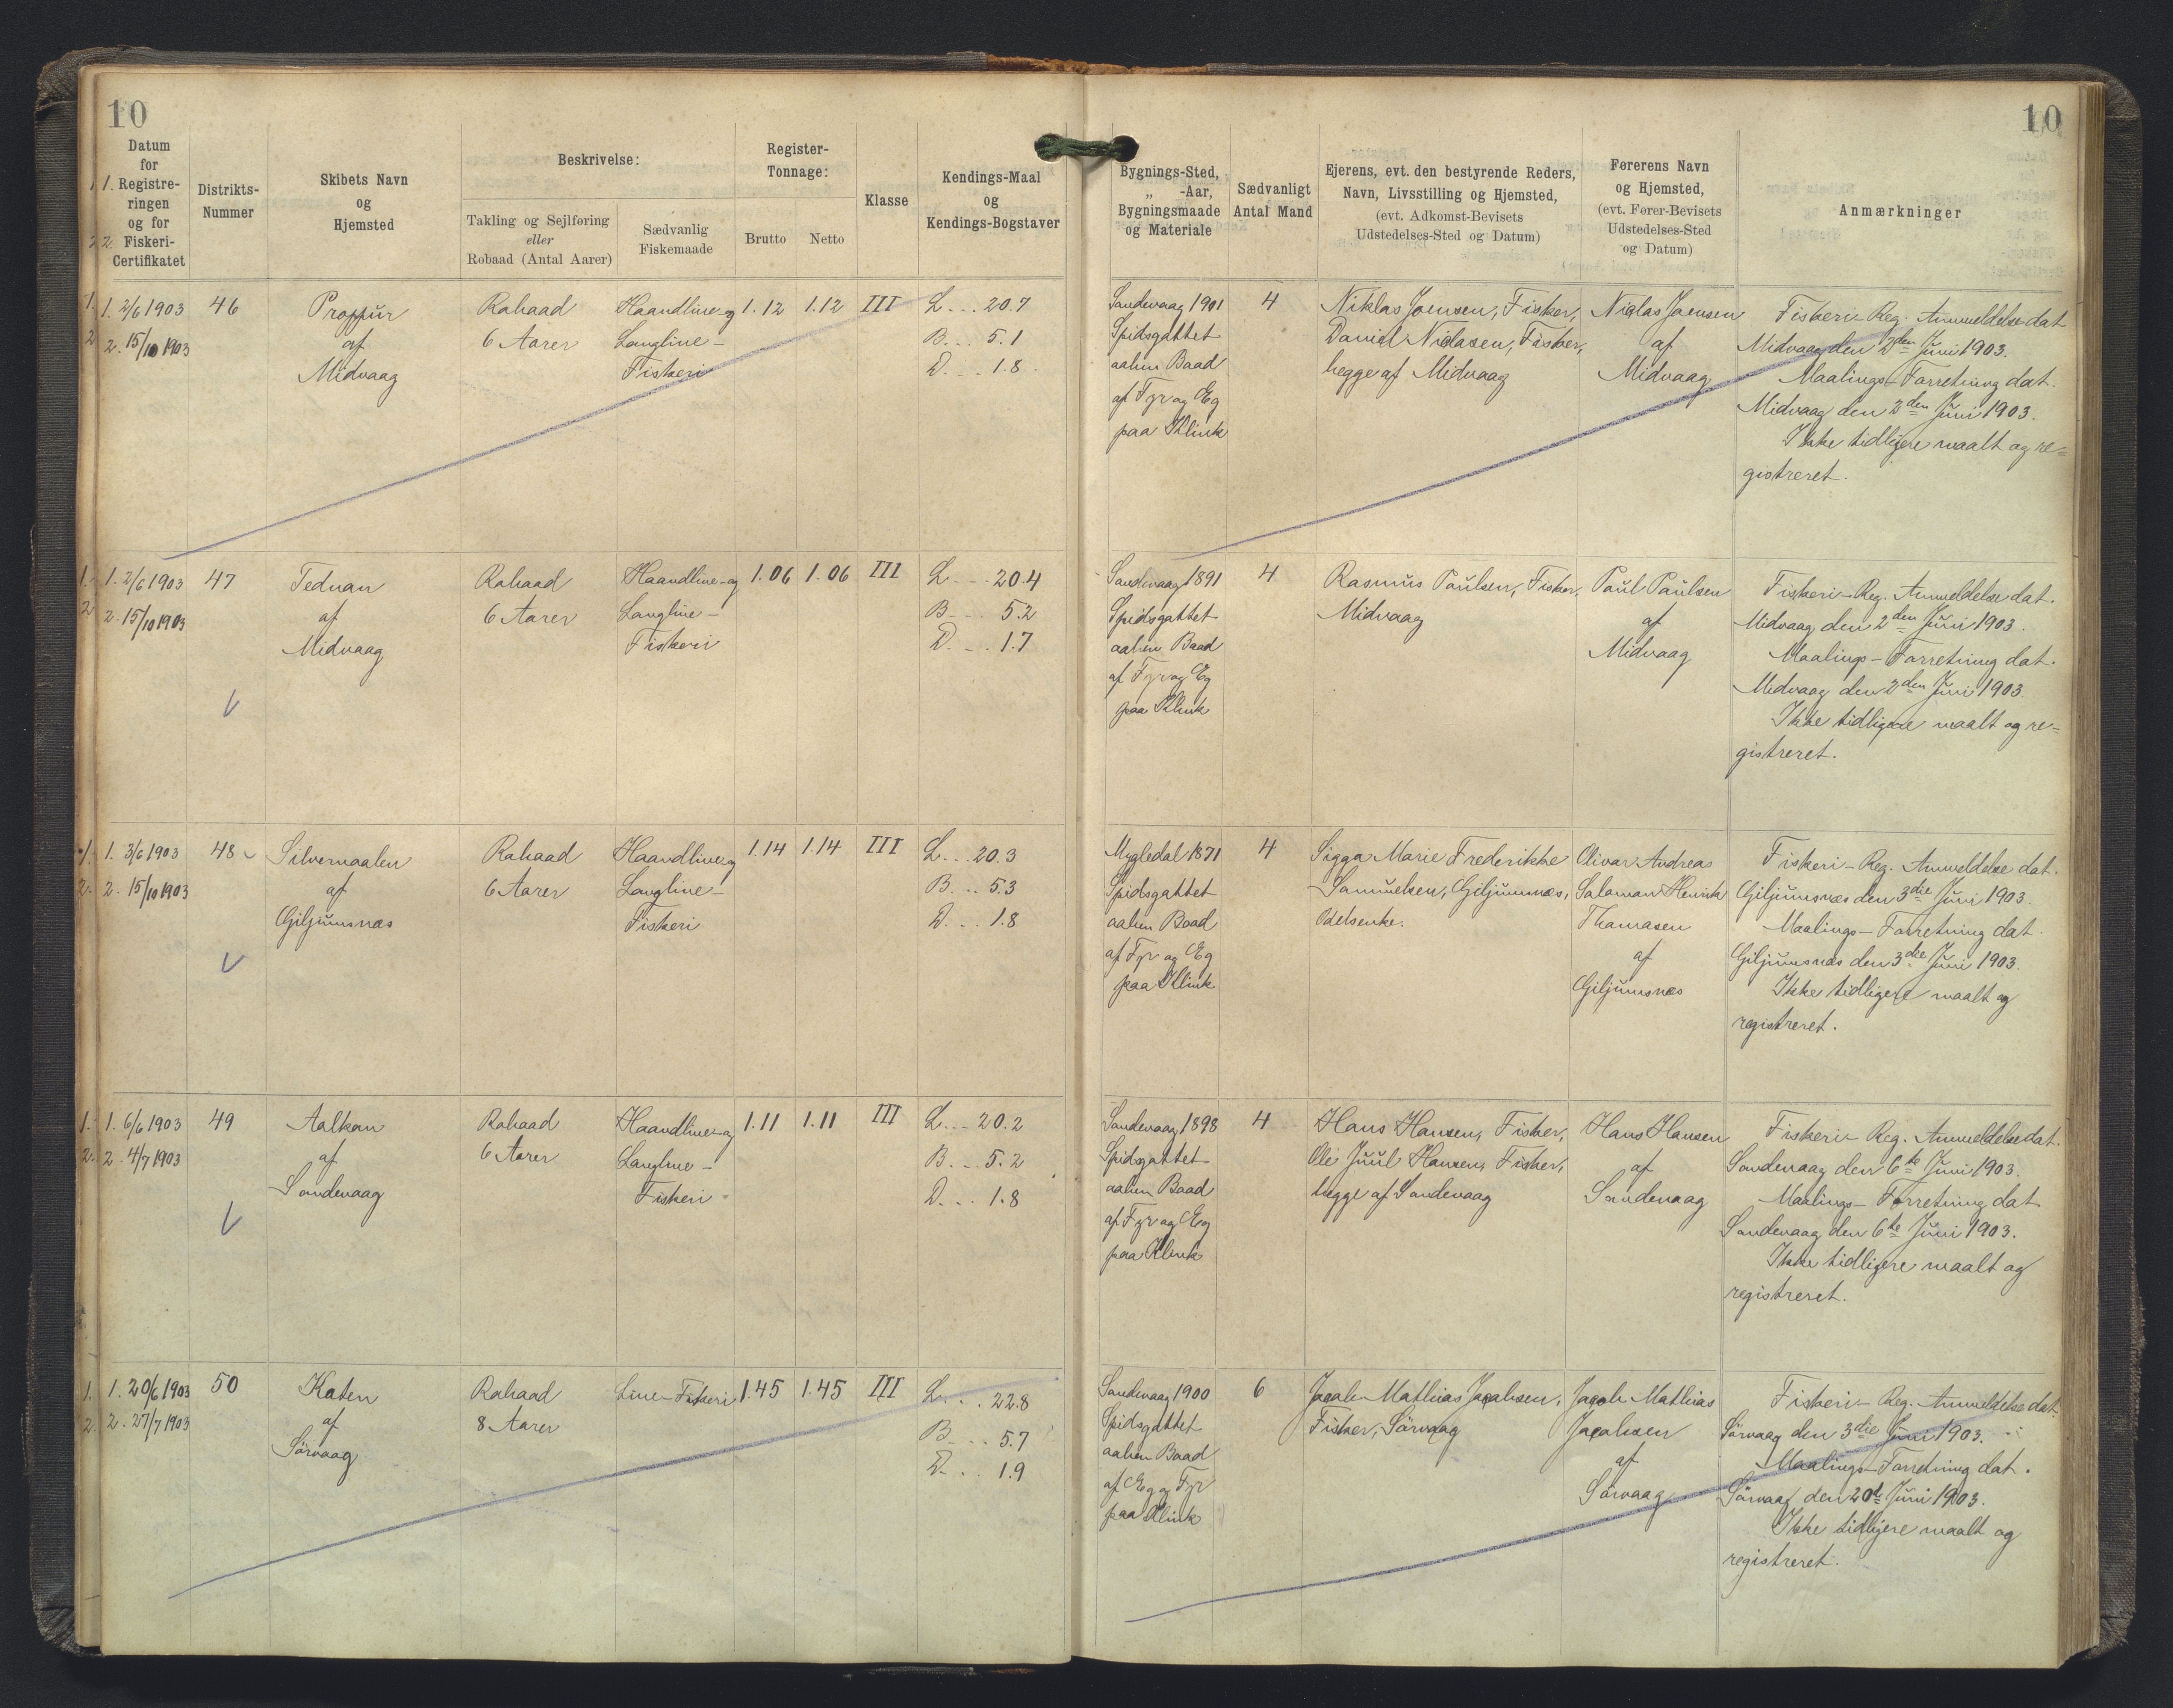 10
10
Datum
for
1. Registre-
ringen
og for
2. Fiskeri-
Certifikatet
Distrikts-
Nummer
Skibets Navn
og
Hjemsted
Beskrivelse:
Takling og Sejlføring
eller
Robaad (Antal Aarer)
Sædvanlig
Fiskemaade
Register-
Tonnage:
Brutto
Netto
Klasse
Kendings-Maal
og
Kendings-Bogstaver
Bygnings-Sted,
„ -Aar,
Bygningsmaade
og Materiale
Sædvanligt
Antal Mand
Ejerens, evt. den bestyrende Reders,
Navn, Livsstilling og Hjemsted,
(evt. Adkomst-Bevisets
Udstedelses-Sted og Datum)
Førerens Navn
og Hjemsted,
(evt. Fører-Bevisets
Udstedelses-Sted
og Datum)
Anmærkninger
1. 2/6 1903
2. 15/10 1903
46
Proppur
af
Midvaag
Robaad
6 Aarer
Haandline og
Langline-
Fiskeri
1.12
1.12
III
L... 20.7
B... 5.1
D... 1.8
Sandevaag 1901
Spidsgattet
aaben Baad
af Fyr og Eg
paa Klink
4
Niklas Joensen, Fisker,
Daniel Niclasen, Fisker,
begge af Midvaag
Niclas Joensen
af
Midvaag
Fiskeri-Reg. Anmeldelse dat
Midvaag den 2den Juni 1903.
Maalings-Forretning dat.
Midvaag den 2den Juni 1903.
Ikke tidligere maalt og re=
gistreret.
1. 2/6 1903
2. 15/10 1903
47
Tednan
af
Midvaag
Robaad
6 Aarer
Haandline og
Langline-
Fiskeri
1.06
1.06
III
L... 20.4
B... 5.2
D... 1.7
Sandevaag 1891
Spidsgattet
aaben Baad
af Fyr og Eg
paa Klink
4
Rasmus Paulsen, Fisker,
Midvaag
Paul Paulsen
af
Midvaag
Fiskeri-Reg. Anmeldelse dat.
Midvaag den 2den Juni 1903.
Maalings-Forretning dat.
Midvaag den 2den Juni 1903.
Ikke tidligere maalt og re=
gistreret.
1. 3/6 1903
2. 15/10 1903
48
Silvernaalen
af
Giljumsnæs
Robaad
6 Aarer
Haandline og
Langline-
Fiskeri
1.14
1.14
III
L... 20.3
B... 5.3
D... 1.8
Mygledal 1871
Spidsgattet
aaben Baad
af Fyr og Eg
paa Klink
4
Sigga Marie Frederikke
Samuelsen, Giljumsnæs,
Odelsenke.
Olivar Andreas
Salamon Henrik
Thomasen
af
Giljumsnæs
Fiskeri-Reg. Anmeldelse dat.
Giljumsnæs den 3die Juni 1903.
Maalings-Forretning dat.
Giljumsnæs den 3die Juni 1903.
Ikke tidligere maalt og
registreret.
1. 6/6 1903
2. 4/7 1903
49
Aalkan
af
Sandevaag
Robaad
6 Aarer
Haandline og
Langline-
Fiskeri
1.11
1.11
III
L... 20.2
B... 5.2
D... 1.8
Sandevaag 1898
Spidsgattet
aaben Baad
af Fyr og Eg
paa Klink
4
Hans Hansen, Fisker,
Ole Juul Hansen, Fisker,
begge af Sandevaag
Hans Hansen
af
Sandevaag
Fiskeri-Reg. Anmeldelse dat.
Sandevaag den 6te Juni 1903.
Maalings-Forretning dat
Sandevaag den 6te Juni 1903.
Ikke tidligere maalt og
registreret.
1. 20/6 1903
2. 27/7 1903
50
Katen
af
Sörvaag
Robaad
8 Aarer
Line-Fiskeri
1.45
1.45
III
L... 22.8
B... 5.7
D... 1.9
Sandevaag 1900
Spidsgattet
aaben Baad
af Eg og Fyr
paa Klink
6
Jacob Mathias Jacobsen,
Fisker, Sörvaag
Jacob Mathias
Jacobsen
af
Sörvaag
Fiskeri-Reg. Anmeldelse dat.
Sörvaag den 3die Juni 1903.
Maalings-Forretning dat.
Sörvaag den 20de Juni 1903.
Ikke tidligere maalt og
registreret.